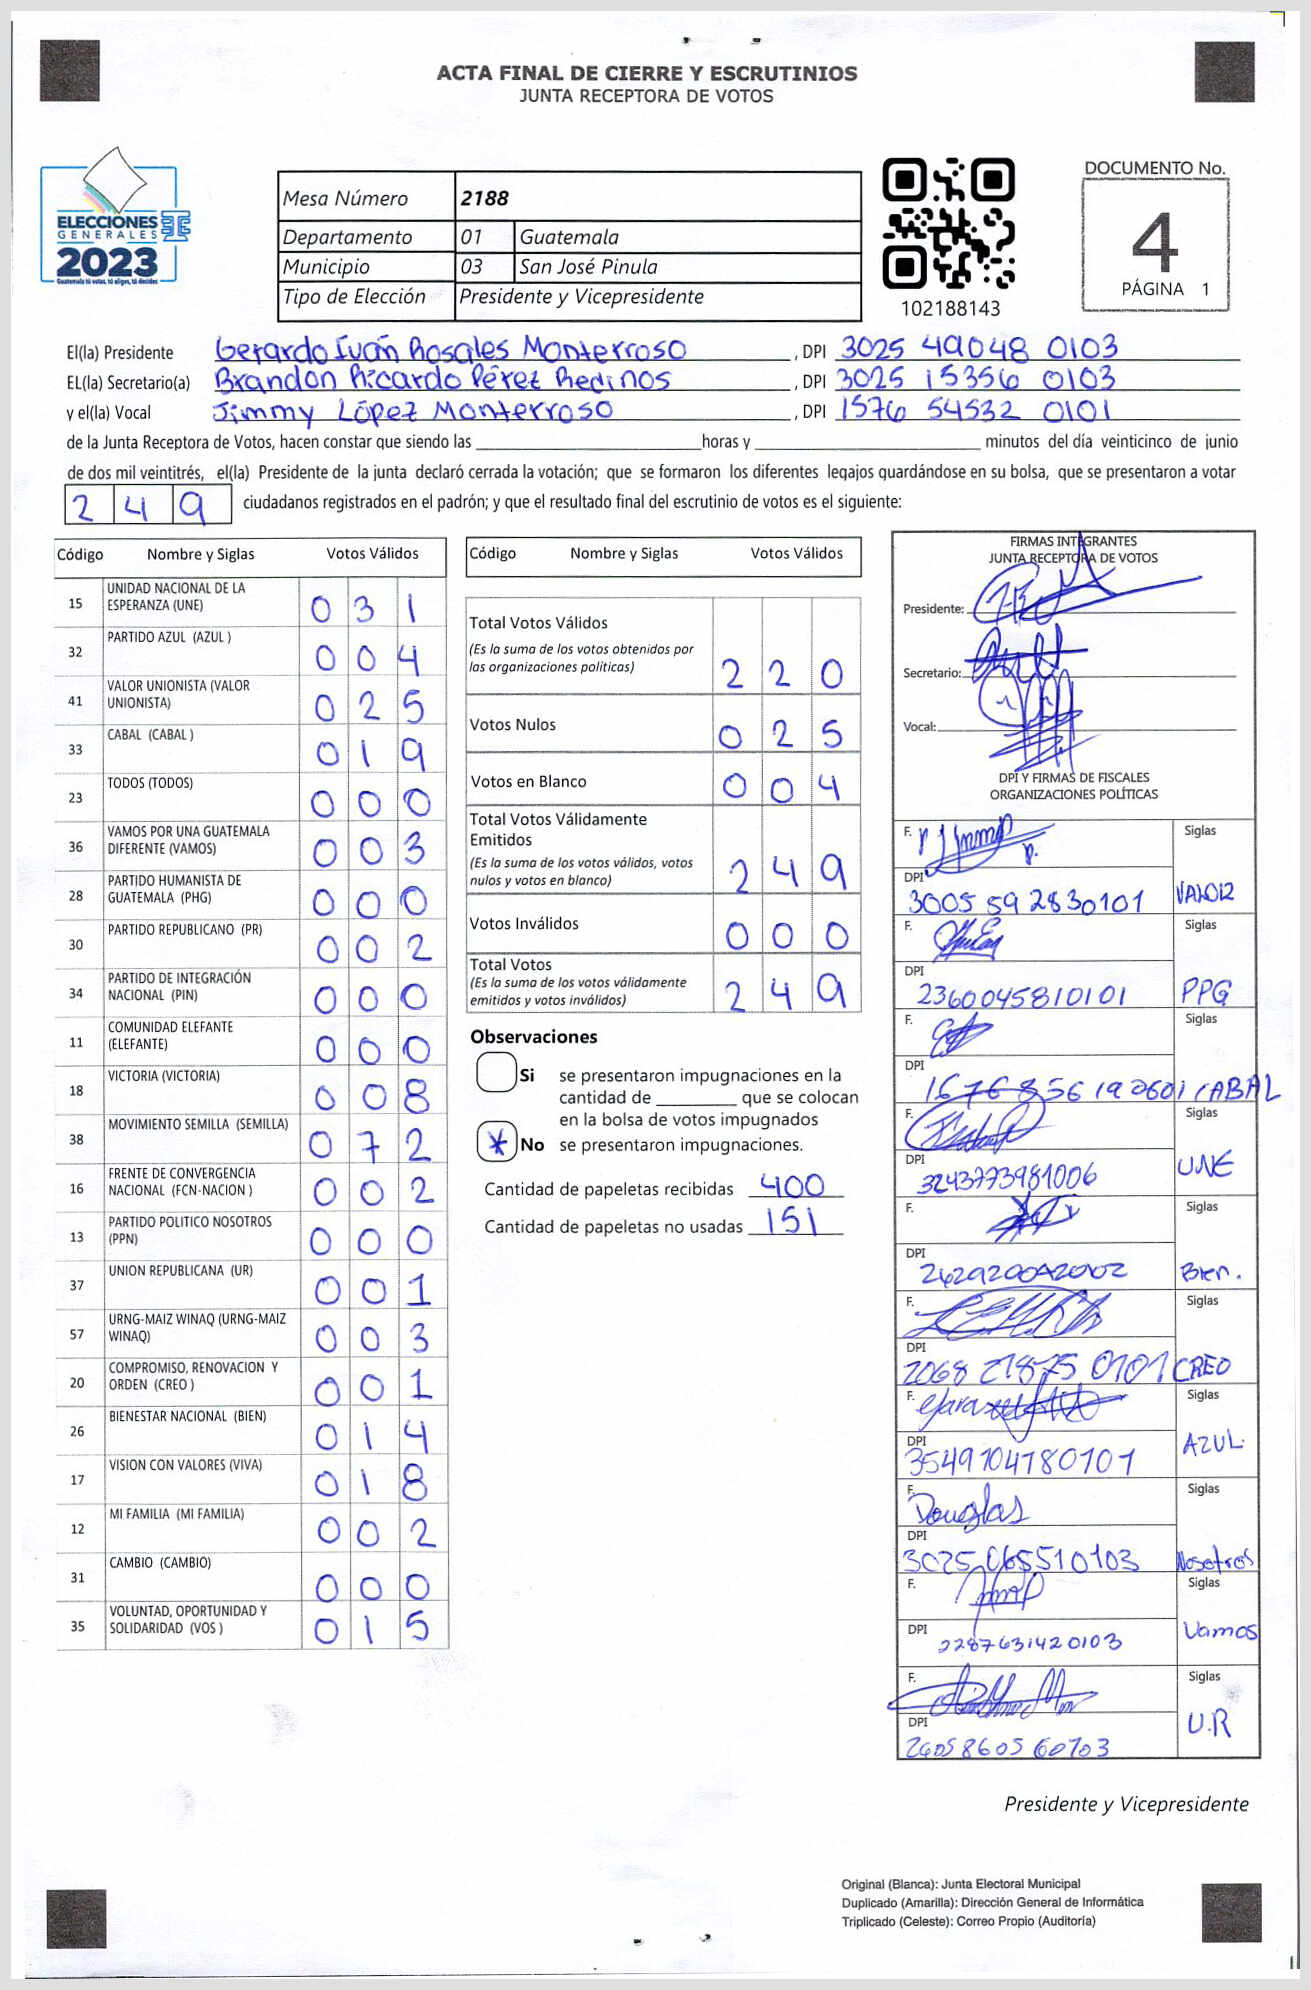 ACTA FINAL DE CIERRE Y ESCRUTINIOS
JUNTA RECEPTORA DE VOTOS
ELECCIONES
GENERALES
2023
Guatemala tú votas, tú eliges, tú decides
Mesa Número 2188
Departamento 01 Guatemala
Municipio 03 San José Pinula
Tipo de Elección Presidente y Vicepresidente
102188143
DOCUMENTO No.
4
PÁGINA 1
El(la) Presidente Gerardo Iván Rosales Monterroso, DPI 3025 49048 0103
EL(la) Secretario(a) Brandon Ricardo Pérez Redinos, DPI 3025 15356 0103
y el(la) Vocal Jimmy López Monterroso, DPI 1576 54532 0101
de la Junta Receptora de Votos, hacen constar que siendo las horas y minutos del día veinticinco de junio
de dos mil veintitrés, el(la) Presidente de la junta declaró cerrada la votación; que se formaron los diferentes legajos guardándose en su bolsa, que se presentaron a votar
249 ciudadanos registrados en el padrón; y que el resultado final del escrutinio de votos es el siguiente:
Código Nombre y Siglas Votos Válidos
15 UNIDAD NACIONAL DE LA ESPERANZA (UNE) 031
32 PARTIDO AZUL (AZUL ) 004
41 VALOR UNIONISTA (VALOR UNIONISTA) 025
33 CABAL (CABAL ) 019
23 TODOS (TODOS) 000
36 VAMOS POR UNA GUATEMALA DIFERENTE (VAMOS) 003
28 PARTIDO HUMANISTA DE GUATEMALA (PHG) 000
30 PARTIDO REPUBLICANO (PR) 002
34 PARTIDO DE INTEGRACIÓN NACIONAL (PIN) 000
11 COMUNIDAD ELEFANTE (ELEFANTE) 000
18 VICTORIA (VICTORIA) 008
38 MOVIMIENTO SEMILLA (SEMILLA) 072
16 FRENTE DE CONVERGENCIA NACIONAL (FCN-NACION ) 002
13 PARTIDO POLITICO NOSOTROS (PPN) 000
37 UNION REPUBLICANA (UR) 001
57 URNG-MAIZ WINAQ (URNG-MAIZ WINAQ) 003
20 COMPROMISO, RENOVACION Y ORDEN (CREO ) 001
26 BIENESTAR NACIONAL (BIEN) 014
17 VISION CON VALORES (VIVA) 018
12 MI FAMILIA (MI FAMILIA) 002
31 CAMBIO (CAMBIO) 000
35 VOLUNTAD, OPORTUNIDAD Y SOLIDARIDAD (VOS ) 015
Código Nombre y Siglas Votos Válidos
Total Votos Válidos
(Es la suma de los votos obtenidos por
las organizaciones políticas) 220
Votos Nulos 025
Votos en Blanco 004
Total Votos Válidamente
Emitidos
(Es la suma de los votos válidos, votos
nulos y votos en blanco) 249
Votos Inválidos 000
Total Votos
(Es la suma de los votos válidamente
emitidos y votos inválidos) 249
Observaciones
Si se presentaron impugnaciones en la
cantidad de que se colocan
en la bolsa de votos impugnados
No se presentaron impugnaciones.
Cantidad de papeletas recibidas 400
Cantidad de papeletas no usadas 151
FIRMAS INTEGRANTES
JUNTA RECEPTORA DE VOTOS
Presidente:
Secretario:
Vocal:
DPI Y FIRMAS DE FISCALES
ORGANIZACIONES POLÍTICAS
F. Siglas
DPI
3005 59 2830101 VALOR
F. Siglas
DPI
2360045810101 PPG
F. Siglas
DPI
CABAL
F. Siglas
DPI
3243773981006 UNE
F. Siglas
DPI
Bien.
F. Siglas
DPI
2068 21875 0101 CREO
F. Siglas
DPI
3549104180101 AZUL.
F. Douglas Siglas
DPI
3025 065510103 Nosotros
F. Siglas
DPI
2287631420103 Vamos
F. Siglas
DPI
2605860560103 U.R
Presidente y Vicepresidente
Original (Blanca): Junta Electoral Municipal
Duplicado (Amarilla): Dirección General de Informática
Triplicado (Celeste): Correo Propio (Auditoría)